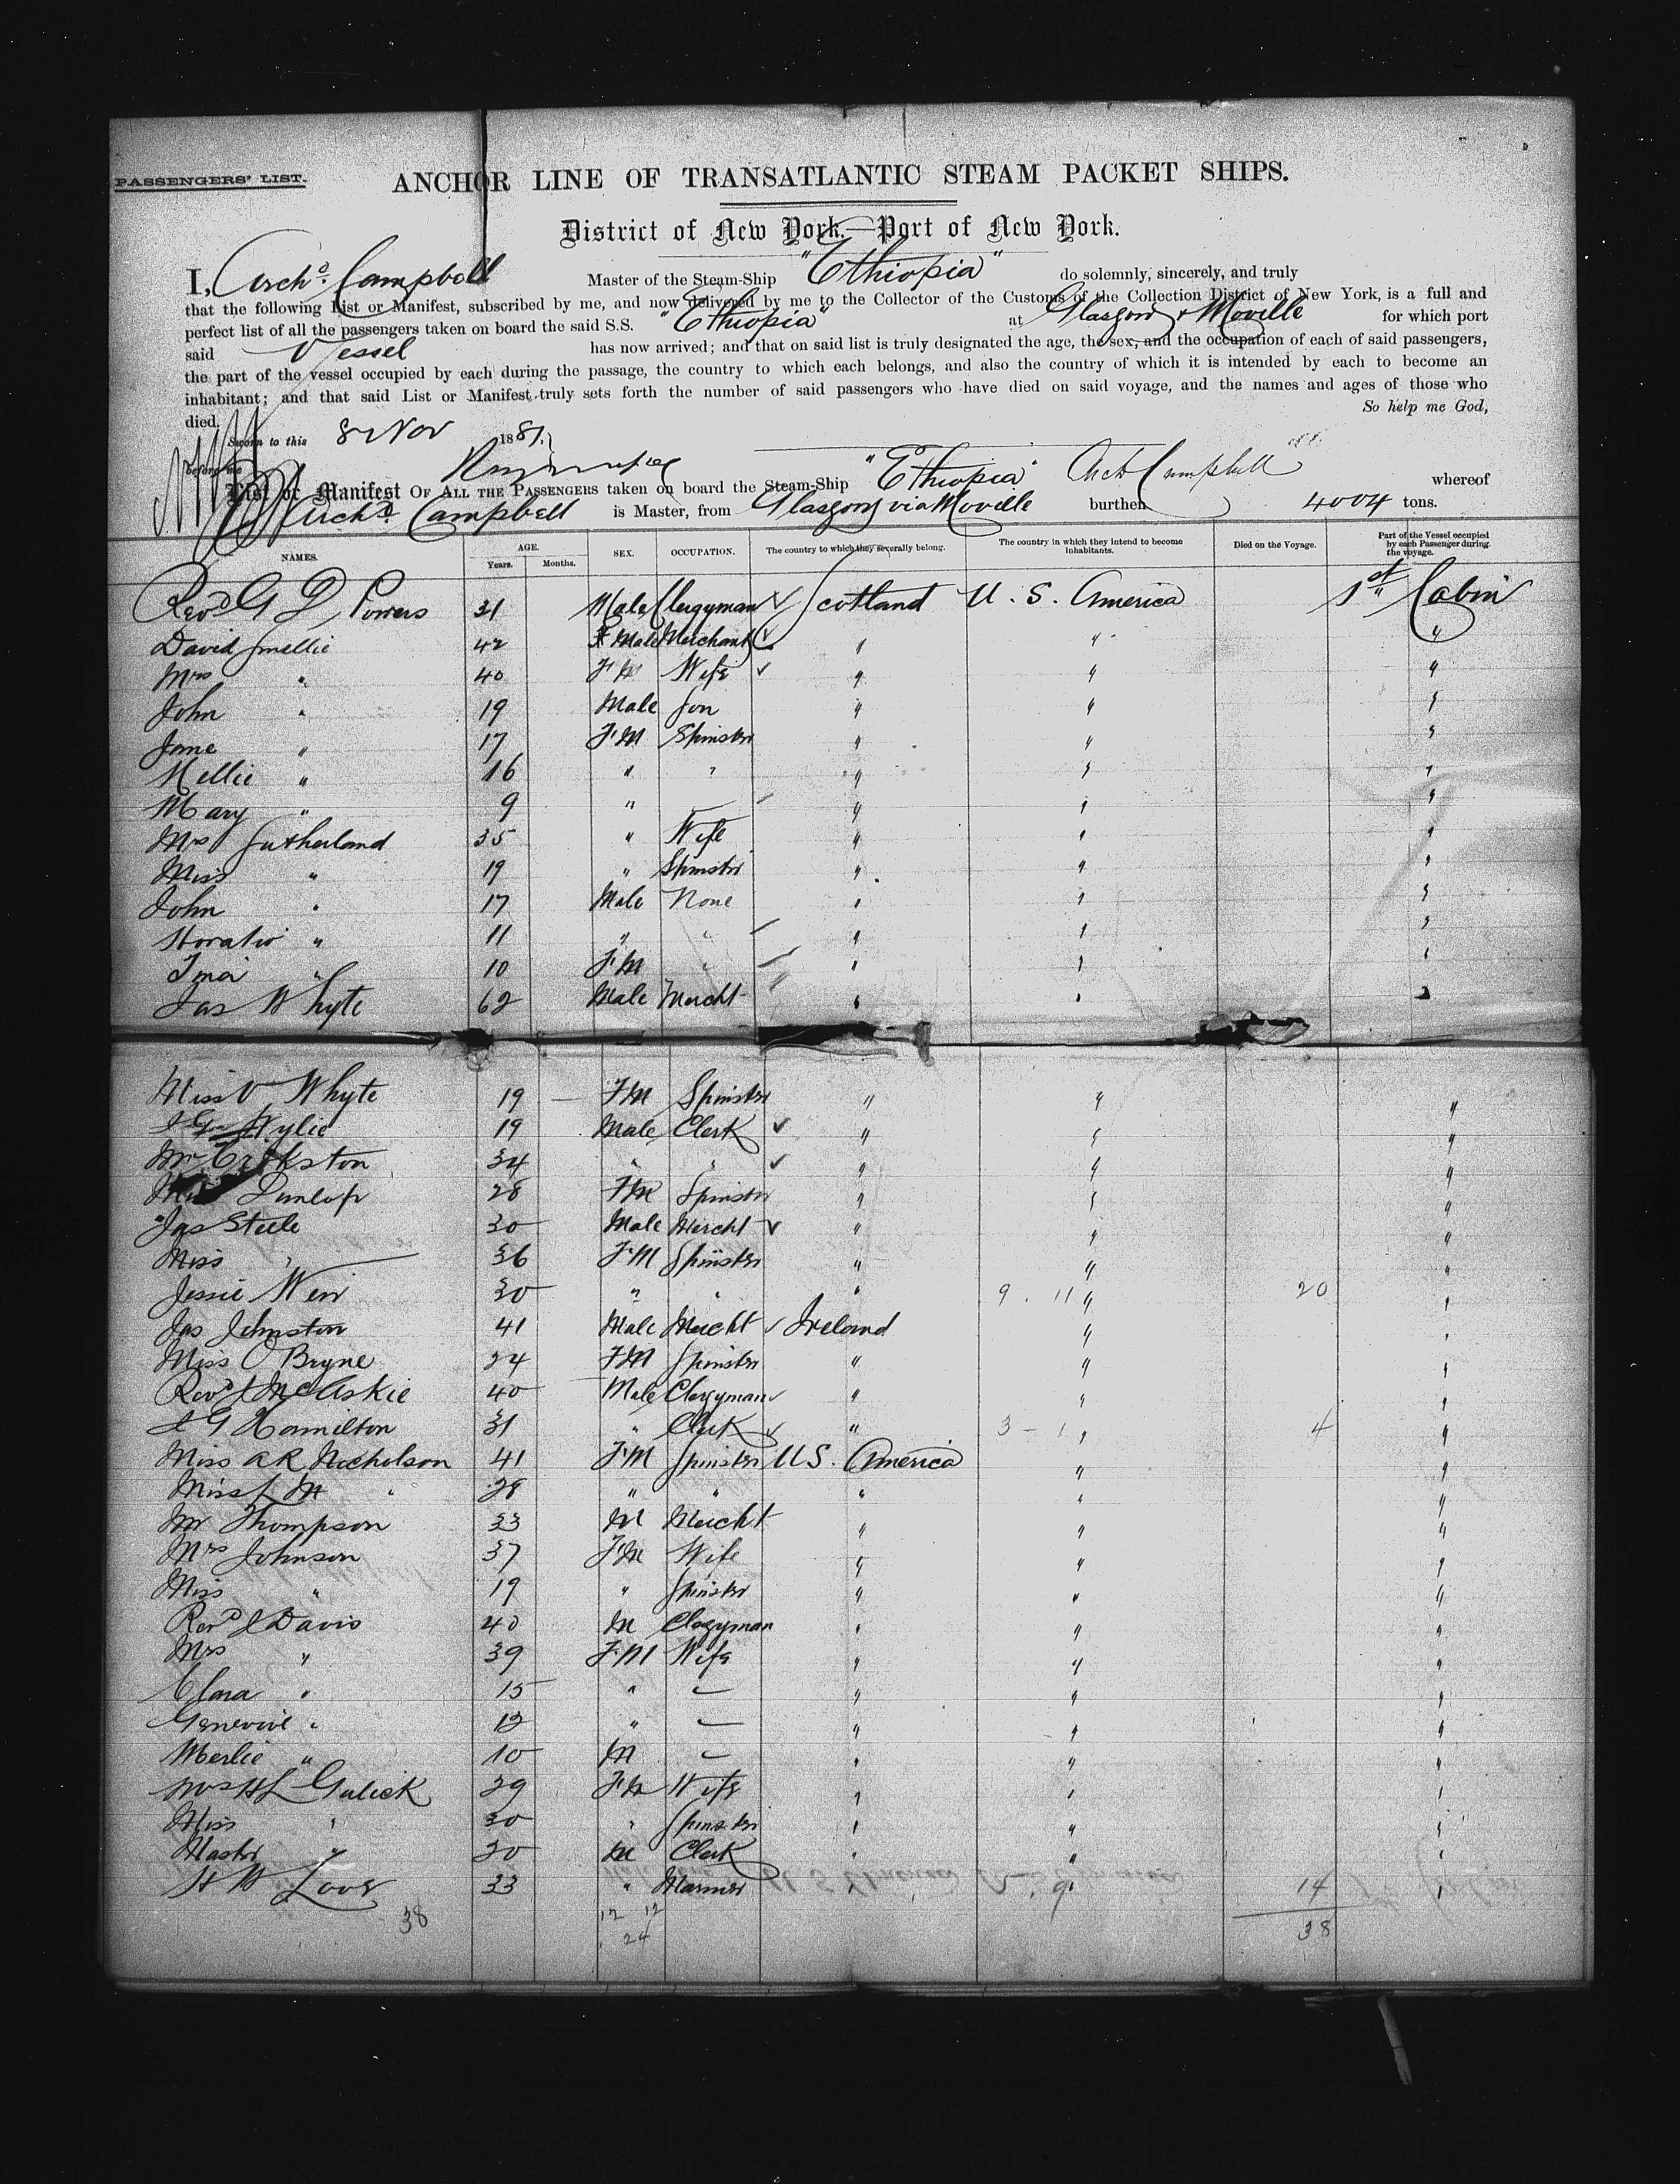 PASSENGERS' LIST.
ANCHOR LINE OF TRANSATLANTIC STEAM PACKET SHIPS.
District of New York.—Port of New York.
I, Archd. Campbell Master of the Steam-Ship "Ethiopia" do solemnly, sincerely, and truly
that the following List or Manifest, subscribed by me, and now delivered by me to the Collector of the Customs of the Collection District of New York, is a full and
perfect list of all the passengers taken on board the said S.S. "Ethiopia" at Glasgow & Moville for which port
said Vessel has now arrived; and that on said list is truly designated the age, the sex, and the occupation of each of said passengers,
the part of the vessel occupied by each during the passage, the country to which each belongs, and also the country of which it is intended by each to become an
inhabitant; and that said List or Manifest truly sets forth the number of said passengers who have died on said voyage, and the names and ages of those who
died. So help me God,
Sworn to this 8 Nov 1881.
before me Archd Campbell
List or Manifest OF ALL THE PASSENGERS taken on board the Steam-Ship "Ethiopia" whereof
Archd. Campbell is Master, from Glasgow via Moville burthen 4004 tons.
NAMES. AGE. Years. Months. SEX. OCCUPATION. The country to which they severally belong. The country in which they intend to become inhabitants. Died on the Voyage. Part of the Vessel occupied by each Passenger during the voyage.
Revd G D Powers 31 Male Clergyman Scotland U. S. America 1st Cabin
David Smellie 42 Male Merchant " " "
Mrs " 40 FM Wife " " "
John " 19 Male Son " " "
Jane " 17 FM Spinster " " "
Nellie " 16 " " " " "
Mary " 9 " " " "
Mrs Sutherland 35 " Wife " " "
Miss " 19 " Spinster " " "
John " 17 Male None " " "
Horatio " 11 " " " " "
" 10 FM " " " "
Jas Whyte 62 Male Mercht " " "
Miss V Whyte 19 FM Spinster " " "
J G Wylie 19 Male Clerk " " "
Mr Crokston 34 " " " " "
Dunlop 28 FM Spinster " " "
Jas Steele 30 Male Mercht " " "
Miss " 36 FM Spinster " " "
Jessie Weir 30 " " " 9. 11 " 20 "
Jas Johnston 41 Male Mercht Ireland " "
Miss O'Bryne 24 FM Spinster " " "
Revd J McAskie 40 Male Clergyman " " "
J G Hamilton 31 " Clerk " 3 - 1 " 4 "
Miss A R Nicholson 41 FM Spinster U S. America " "
Miss L M " 28 " " " " "
Mr Thompson 33 M Mercht " " "
Mrs Johnson 37 FM Wife " " "
Miss " 19 " Spinster " " "
Revd J Davis 40 M Clergyman " " "
Mrs " 39 FM Wife " " "
Clara " 15 " — " " "
Genevive " 12 " — " " "
Merlie " 10 M — " " "
Mrs H L Gulick 29 FM Wife " " "
Miss " 30 " Spinster " " "
Master " 20 M Clerk " " "
H W Love 33 " Mariner " 9 " 14 "
38 12 12 38
24